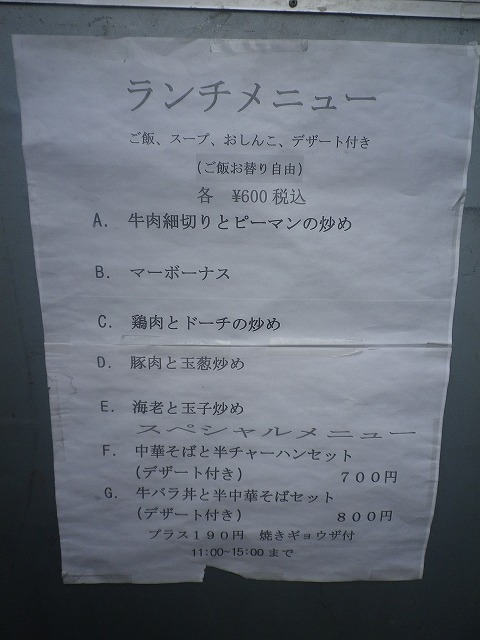 ランチメニュー
ご飯、スープ、おしんこ、デザート付き
(ご飯お替り自由)
各 ¥600税込
A. 牛肉細切りとピーマンの炒め
B. マーボーナス
C. 鶏肉とドーチの炒め
D. 豚肉と玉葱炒め
E. 海老と玉子炒め
スペシャルメニュー
F. 中華そばと半チャーハンセット
(デザート付き) 700円
G. 牛バラ丼と半中華そばセット
(デザート付き) 800円
プラス190円 焼きギョウザ付
11:00~15:00まで